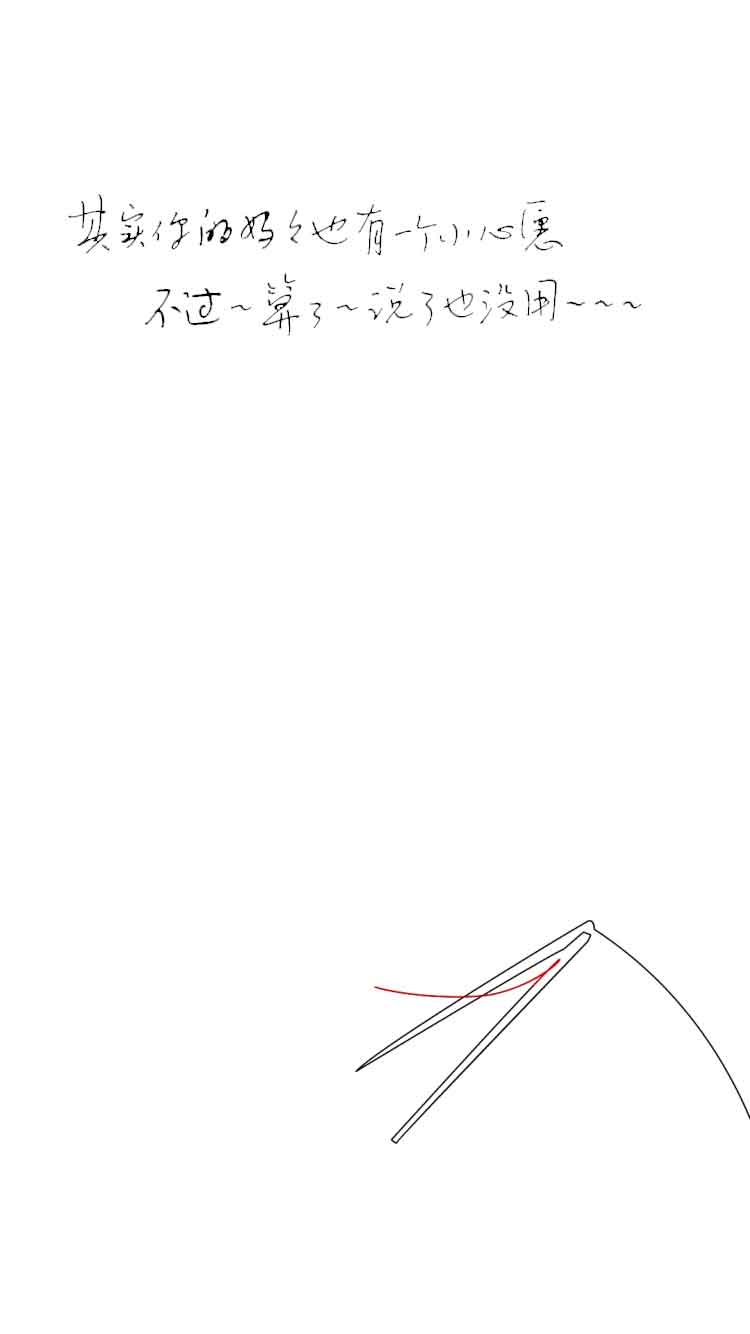 其实你的好々也有一个小心愿
不过～算了～说了也没用～～～